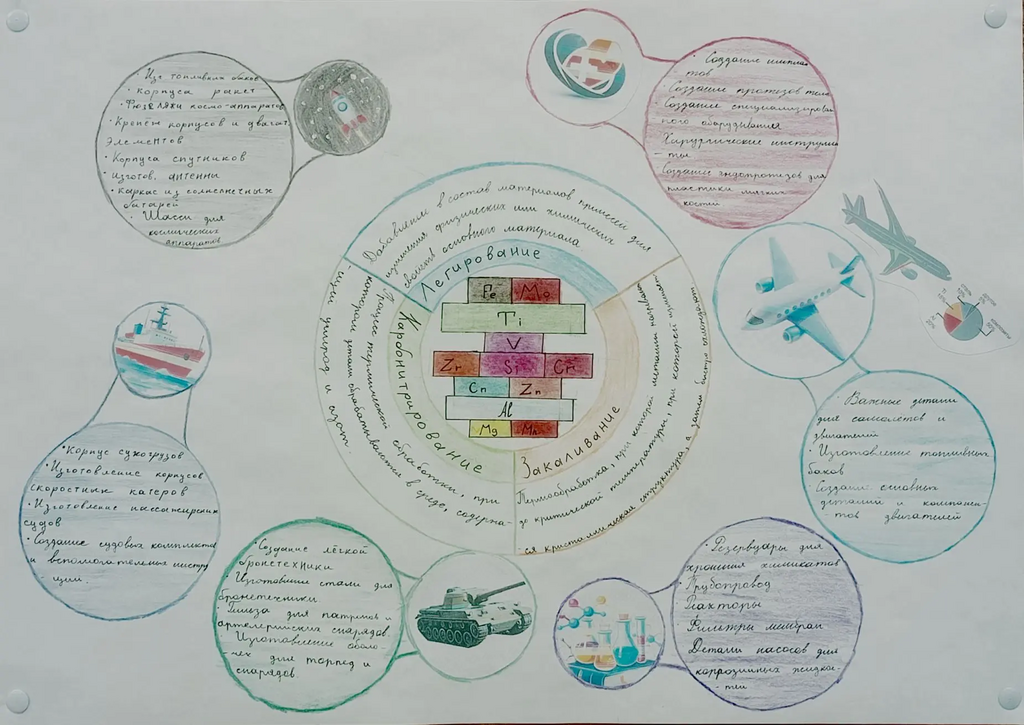 Изг топливных баков
• корпуса ракет
• Фюзеляжи космо-аппаратов
• Кронты корпусов и двигат
элементов
• Корпуса спутников
• изготов. антенны
• каркас из солнечных
батарей
• Шасси для
космических
аппаратов
• Создание имплан
- тов
• Создание протезов тела
• Создание специализирован
ного оборудования
Хирургические инструмен
- ты
• Создание эндопротезов для
пластики мягких
костей
Добавление в состав материалов примесей для
изменения физических или химических
свойств основного материала
Легирование
Fe Mo
Ti
V
Zr Si Cr
Cn Zn
Al
Mg Mn
Карбонитрирование
Процесс термической обработки, при
котором детали обрабатываются в среде, содержа-
- щей углерод и азот.
Закаливание
Термообработка, при которой металл нагреваю
до критической температуры, при которой изменяет
ся кристаллическая структура, а затем быстро охлаждают
• Важные детали
для самолётов и
двигателей
• Изготовление топливных
баков
Создание основных
деталей и компонен-
тов двигателей
• Корпус сухогрузов
• Изготовление корпусов
скоростных катеров
• Изготовление пассажирских
судов
• Создание судовых комплектов
и вспомогательных инстру
- ций.
• Создание лёгкой
бронетехники
• Изготовление стали для
бронетехники
• Гильза для патронов и
артелерийских снарядов.
Изготовление оболо-
чек для торпед и
снарядов.
• Резервуары для
хранения химикатов
• Трубопровод
Реакторы
Фильтры мембран
Детали насосов для
коррозийных жидкос-
- тей